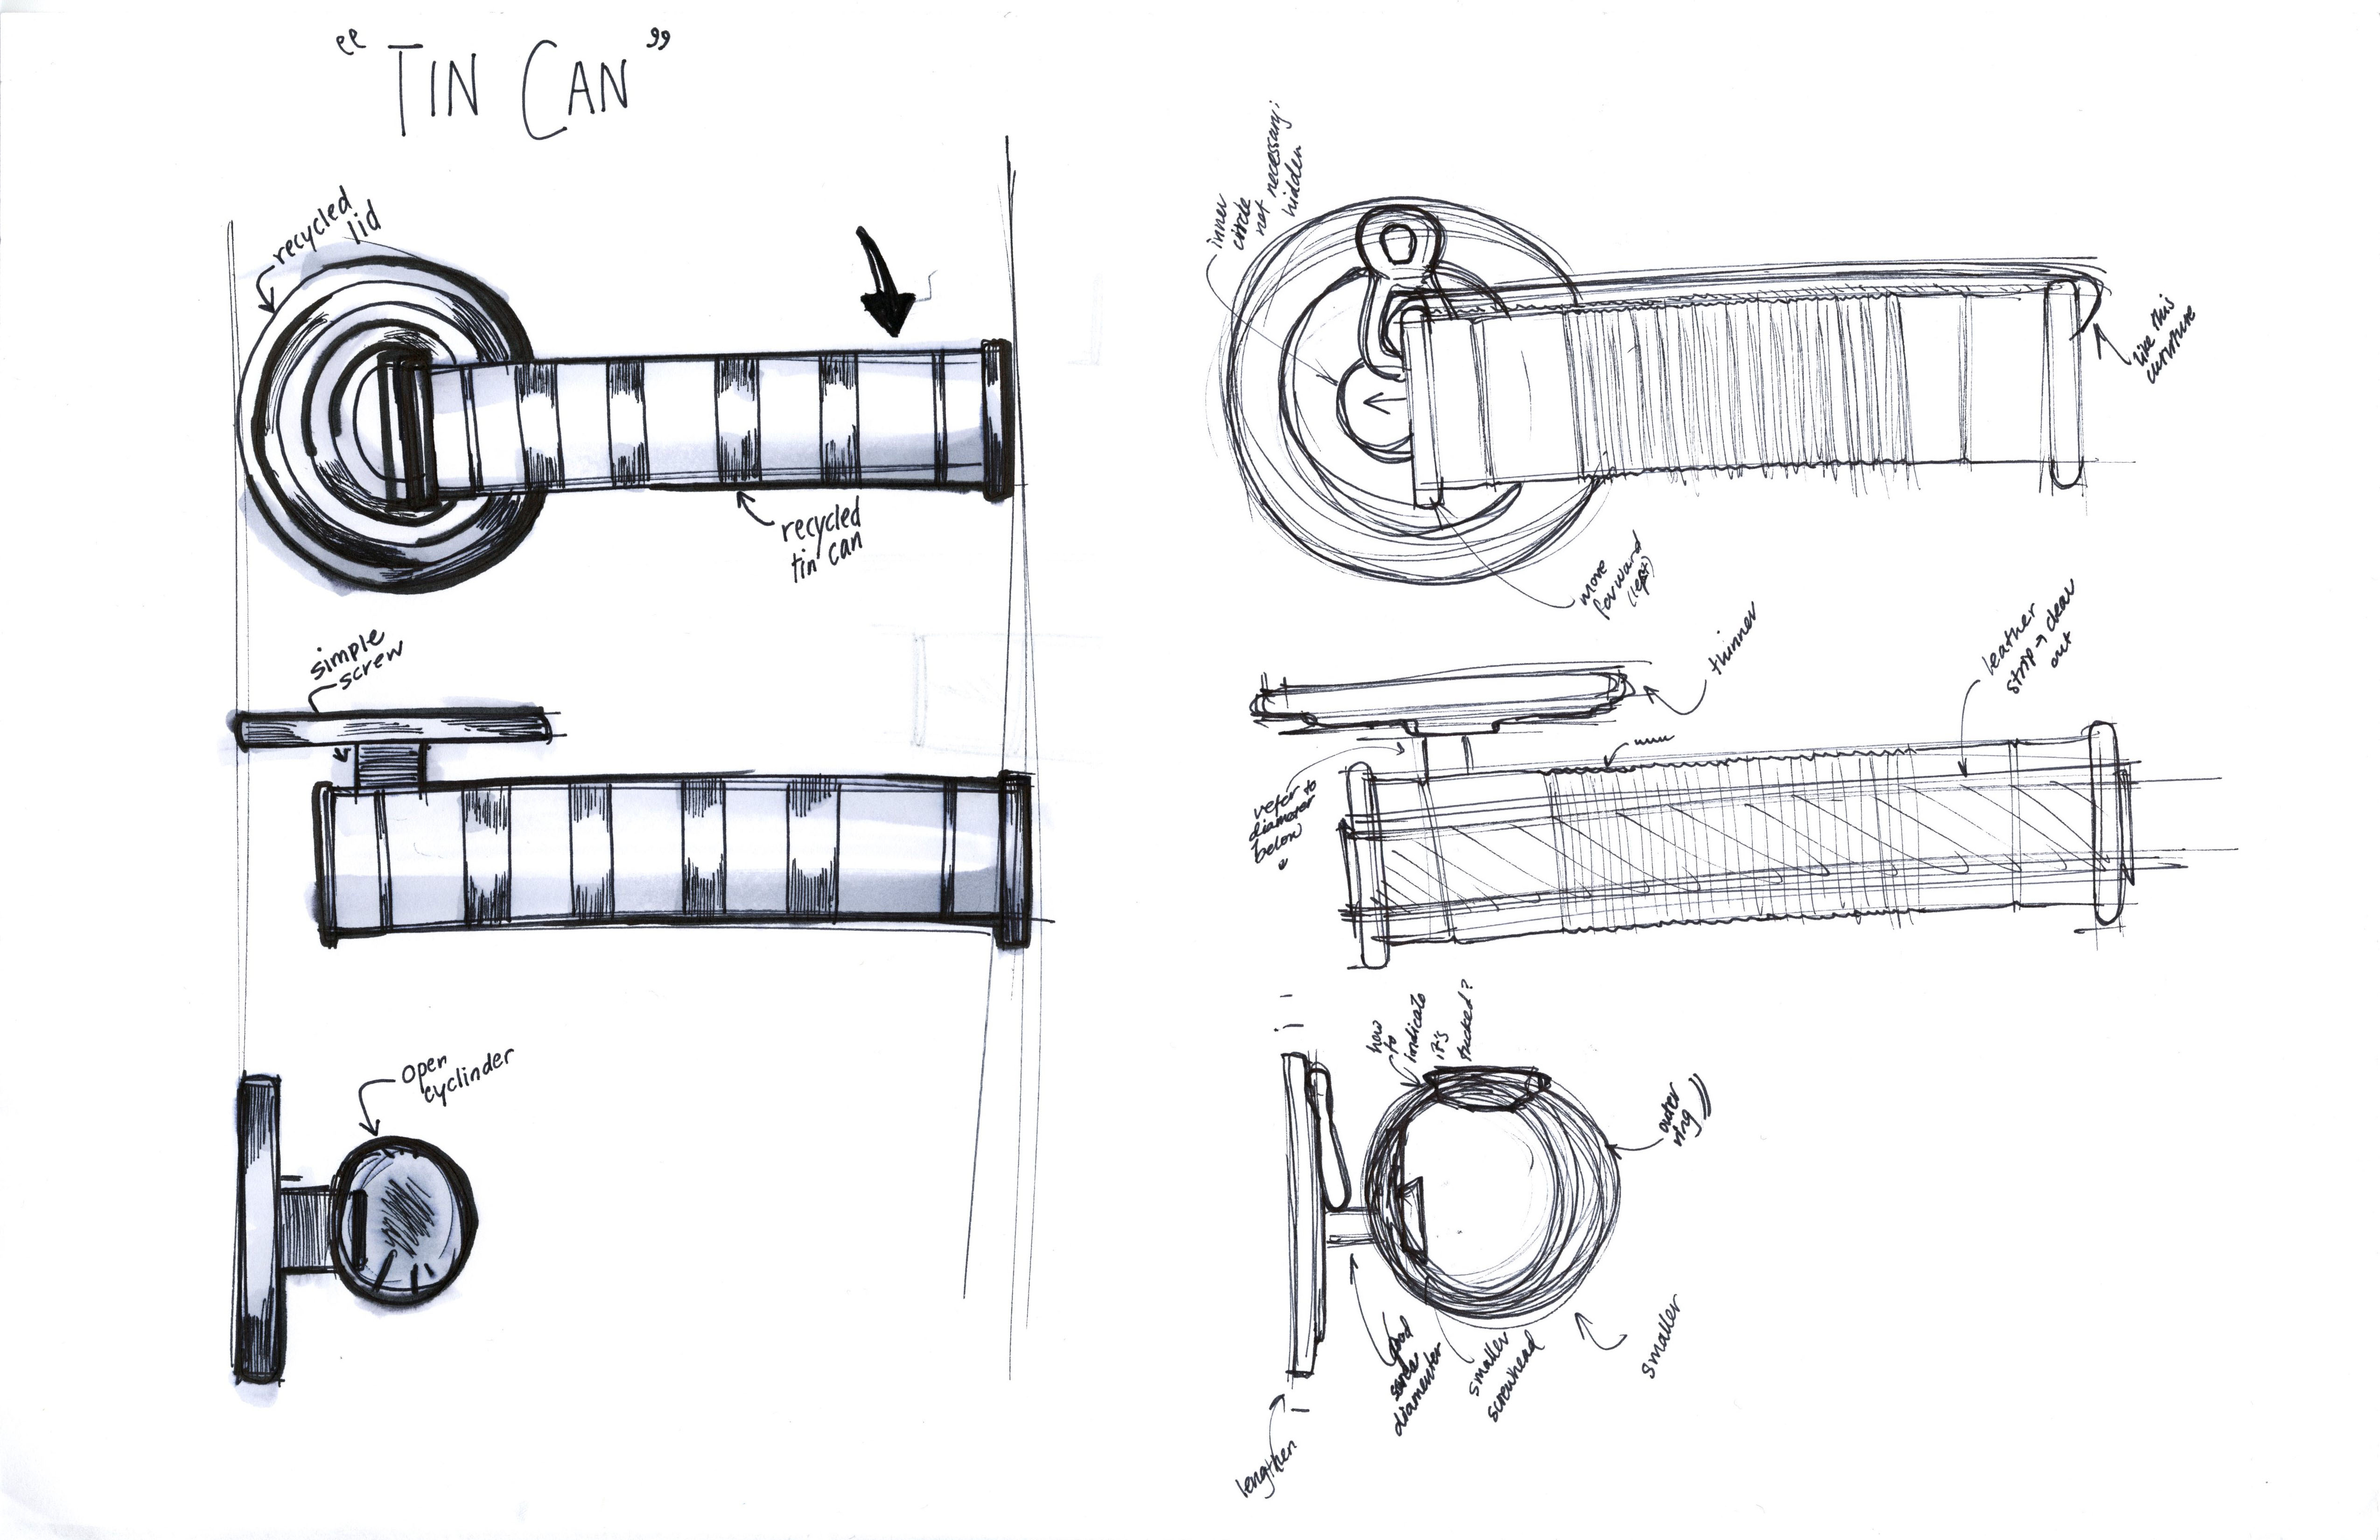 “TIN CAN”
recycled
lid
recycled
tin can
simple
screw
open
cyclinder
inner
circle
not necessary;
hidden
like this
curvature
move
forward
(left)
thinner
leather
strip → clean
out
refer to
diameter
below
how
to
indicate
it's
tucked?
outer
ring
smaller
smaller
screwhead
good
screw
diameter
lengthen